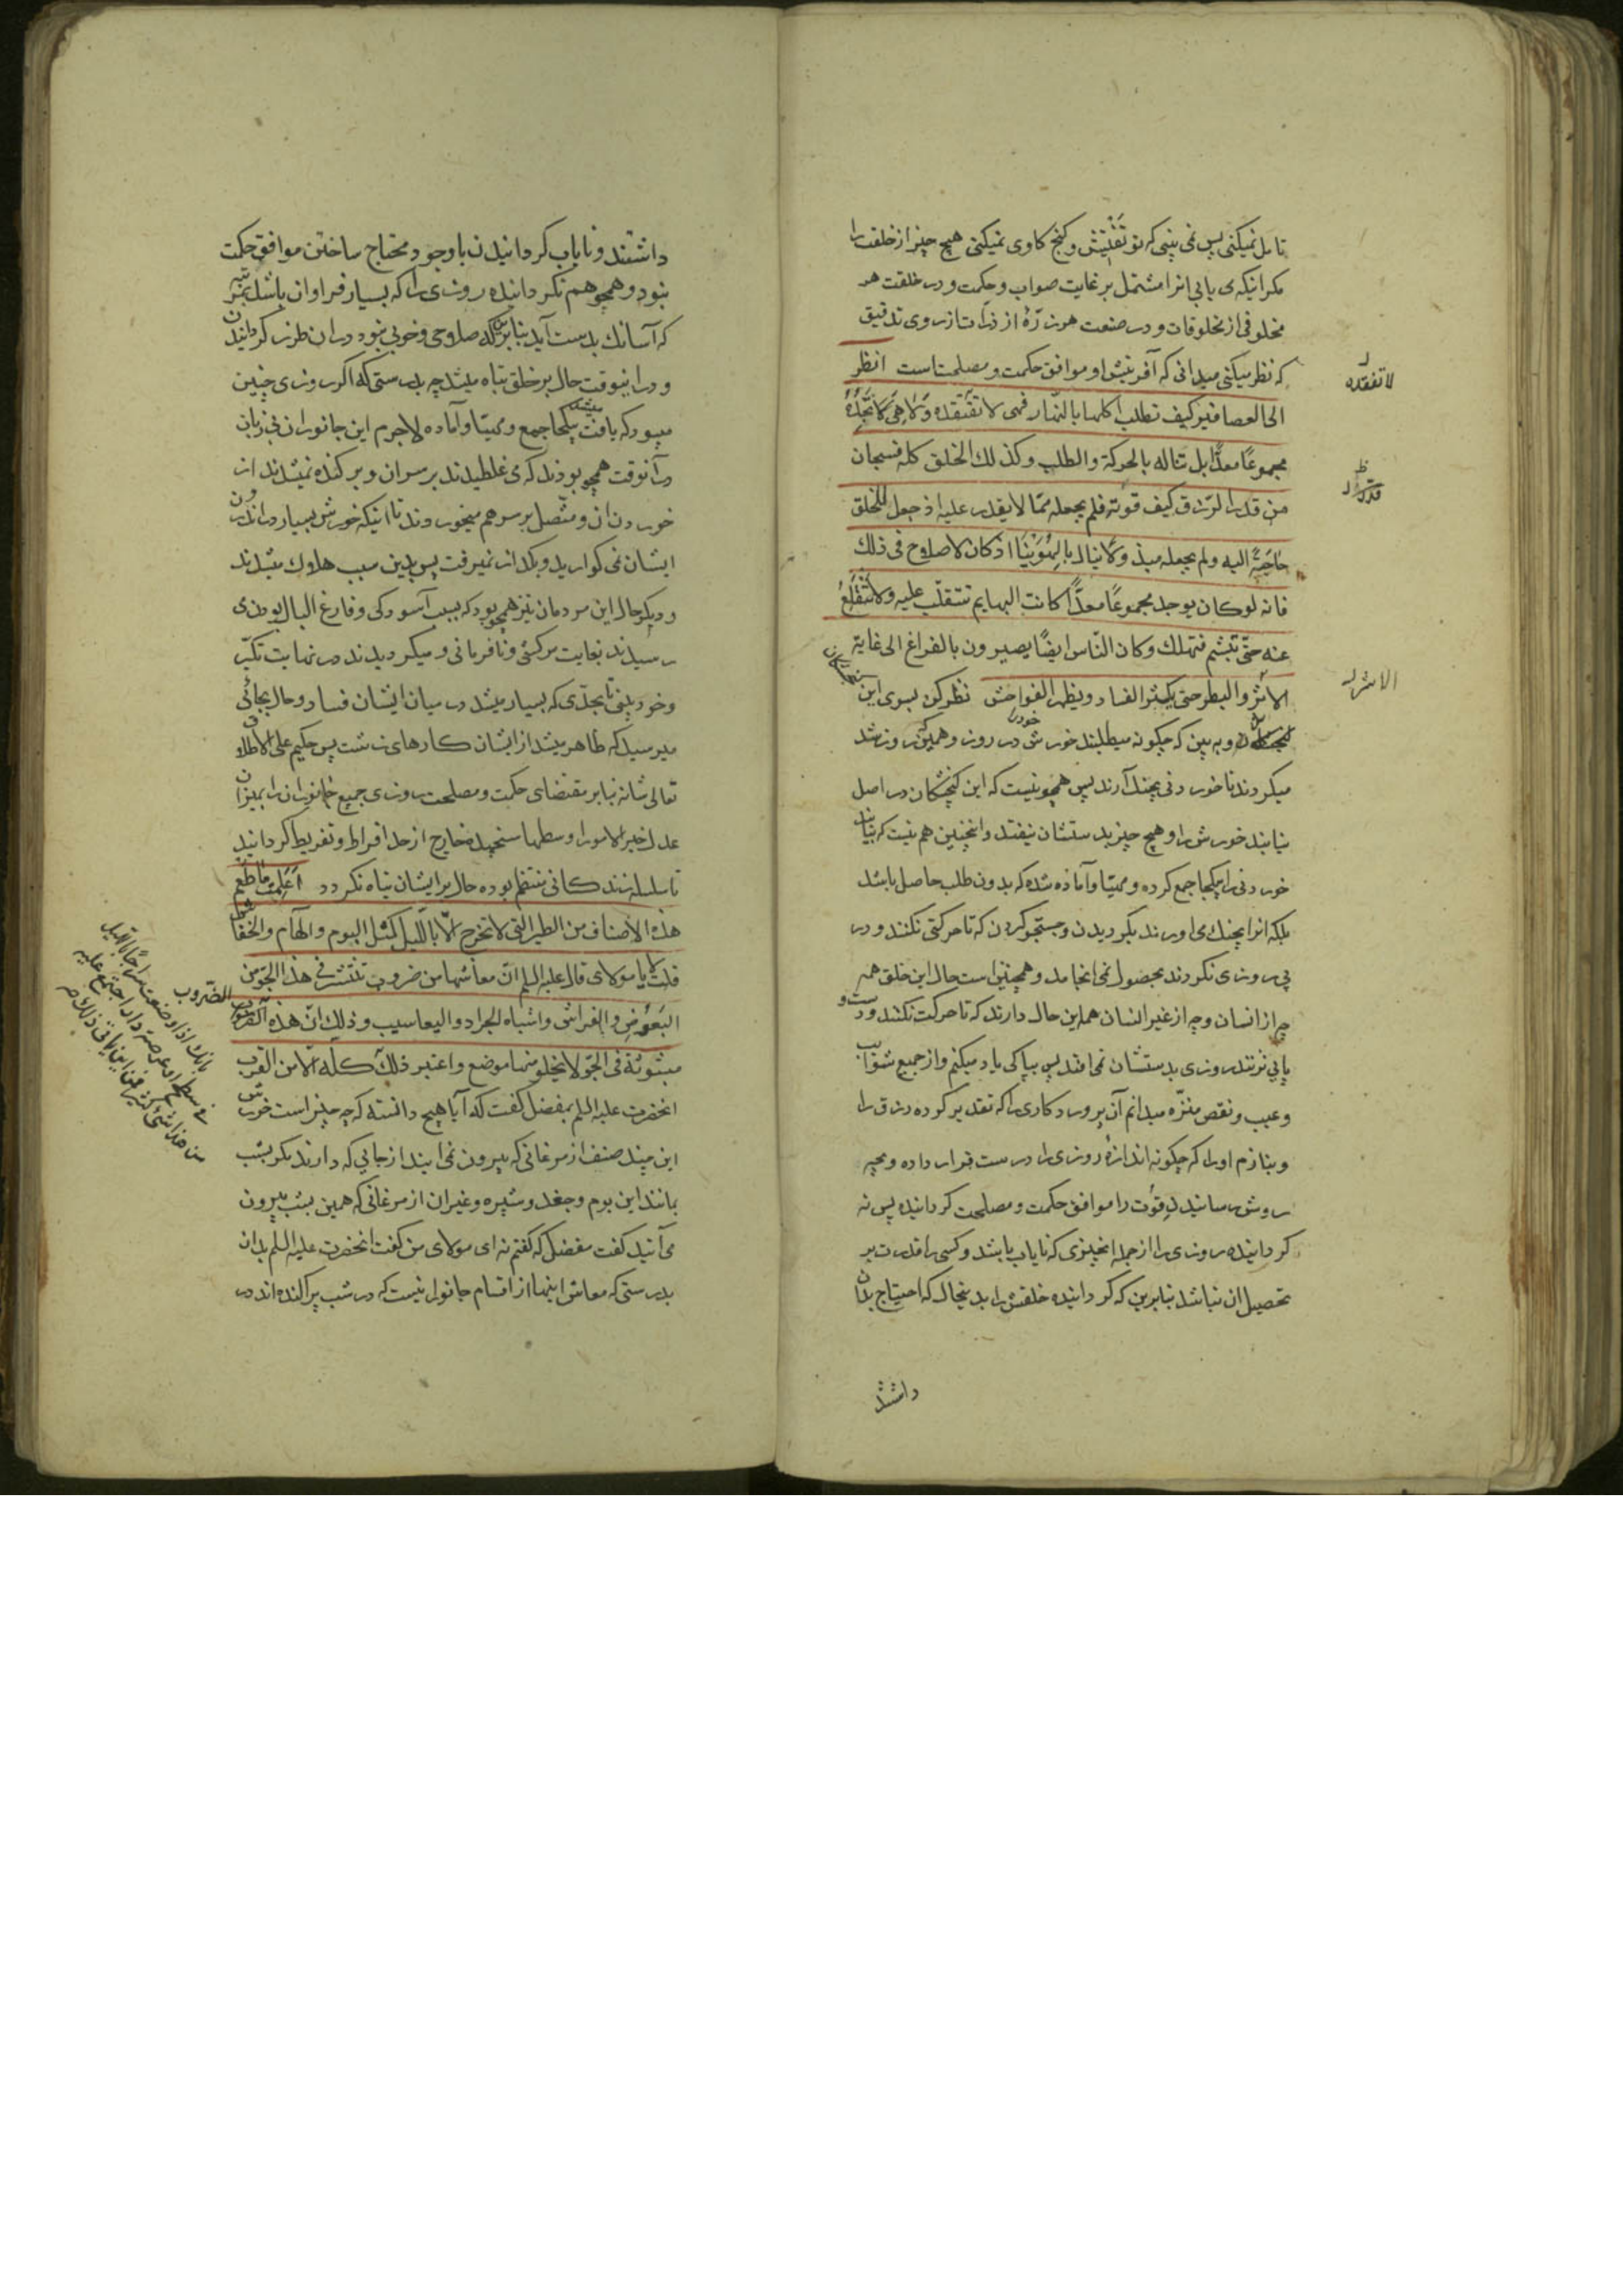 تامل نمیکنی پس نمی بینی که تو تفتیش و کنج کاوی نمیکنی هیچ چیز از خلقت را
مکر اینکه می یابی انرا مشتمل بر غایت صواب و حکمت و در خلقت هر
مخلوقی از مخلوقات و در صنعت هر ذرّهٔ از ذرات از روی تدقیق
که نظر میکنی میدانی که آفرینش او موافق حکمت و مصلحتست انظر
الی العصافیر کیف تطلب اکلها بالنّهار فهی لا تفتقده ولا هی تجده
مجموعًا معدًّا بل تناله بالحرکة والطلب وکذلک الخلق کله فسبحان
من قدر الرّزق کیف قوته فلم یجعله ممّا لا یقدر علیه اذ جعل للخلق
حاجةً الیه ولم یجعله مبذولا ینال بالهُوَیْنَا اذ کان لا صلاح فی ذلک
فانه لو کان یوجد مجموعًا معدًّا کانت البهایم تتقلّب علیه ولا تنقلع
عنه حتّی تبشم فتهلک وکان النّاس ایضًا یصیرون بالفراغ الی غایة
الاشر والبطر حتی یکثر الفساد ویظهر الفواحش نظر کن بسوی این
کنجشکان و به بین که چکونه میطلبند خورش خود را در روز و همین که روز شد
میکردند تا خوردنی بچنک آرند پس همچو نیست که این کنجشکان در اصل
نیابند خورش را و هیچ چیز بدستشان نیفتد و اینچنین هم نیست که بیابند
خوردنی را یکجا جمع کرده و مهیّا و آماده شده که بدون طلب حاصل باشد
بلکه انرا بچنک می اورند بکردیدن و جستجو کردن که تا حرکتی نکنند و در
پی روزی نکردند بحصول نمی انجامد و همچنین است حال این خلق همه
چه از انسان و چه از غیر انسان همه این حال دارند که تا حرکت نکنند و دست و
پایی نزنند روزی بدستشان نمی افتد پس بپاکی یاد میکنم و از جمیع شوایب
و عیب و نقص منزّه میدانم آن پروردکاری را که تقدیر کرده رزق را
و بنازم او را که چکونه اندازهٔ روزی را درست قرار داده و بچه
روش رسانید قوت را موافق حکمت و مصلحت کردانیده پس نه
کردانیده روزی را از جمله انچیزی که نایاب باشد و کسی را قدرت بر
تحصیل ان نباشد بنابرین که کردانیده خلقش را بدینحال که احتیاج بدان
داشتند
لا تفقده
قدّر
الاشر
داشتند و نایاب کردانیدن با وجود محتاج ساختن موافق حکمت
نبود و همچو هم نکردانیده روزی را که بسیار فراوان باشد
که آسانک بدست آید بنابرین که صلاحی و خوبی نبود در ان طرز کردانیدن
و در اینوقت حال بر خلق تباه میشد چه بدرستی که اکر روزی چنین
میبود که یافت میشد یکجا جمع و مهیّا و آماده لاجرم این جانوران بی زبان
در آنوقت همچو بودند که می غلطیدند بر سر ان و برکنده نمیشدند از
خوردن ان و متّصل بر سر هم میخوردند تا اینکه خورش بسیار در اندرون
ایشان نمی کوارید و بکداز نمیرفت پس بدین سبب هلاک میشدند
و دیکر حال این مردمان نیز همچو بود که بسبب آسودکی و فارغ البال بودن
رسیدند بغایت سرکشی و نافرمانی و میکردیدند در نهایت تکبّر
و خودبینی تا بحدّی که بسیار میشد در میان ایشان فساد و حال بجائی
میرسید که ظاهر میشد از ایشان کارهای زشت پس حکیم علی الاطلاق
تعالی شانه بنابر مقتضای حکمت و مصلحت روزی جمیع جانوران را بمیزان
عدل خیر الامور اوسطها سنجیده خارج از حد افراط و تفریط کردانید
تا سلسله زندکانی منتظم بوده حال بر ایشان تباه نکردد اعلمت ما طعم
هذه الاصناف من الطیر التی لا تخرج الّا باللّیل کمثل البوم والهام والخفاش
قلت لا یا مولای قال علیه السلم انّ معاشها من ضروب تنتشر فی هذا الجوّ من
البعوض والفراش واشباه الجراد والیعاسیب وذلک انّ هذه الضروب
مبثوثة فی الجوّ لا یخلو منها موضع واعتبر ذلک
انحضرت علیه السلم بمفضل کفت که آیا هیچ دانسته که چه چیز است خورش
این چند صنف از مرغانی که بیرون نمی ایند از جایی که دارند مکر بشب
مانند این بوم و جغد و شپره و غیر ان از مرغانی که همین بشب بیرون
می آیند کفت مفضل که کفتم نه ای مولای من کفت انحضرت علیه السلم بدان
بدرستی که معاش اینها از اقسام جانورانیست که در شب پراکنده اند در
الضروب
بانک اذا وضعت سراجًا باللیل
فی سطح او عرصة دار اجتمع علیه
من هذا شیٔ کثیر فمن این یاتی ذلک